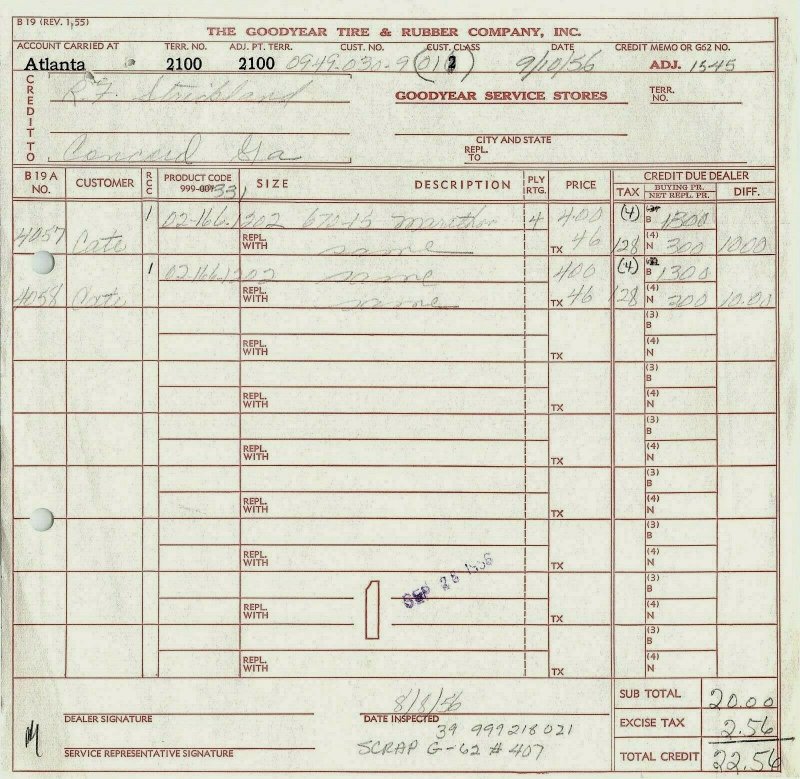 B 19 (REV. 1,55)
THE GOODYEAR TIRE & RUBBER COMPANY, INC.
ACCOUNT CARRIED AT TERR. NO. ADJ. PT. TERR. CUST. NO. CUST. CLASS DATE CREDIT MEMO OR G62 NO.
Atlanta 2100 2100 0949-030-9 (012) 9/10/56 ADJ. 1545
CREDIT TO
R.F. Strickland
GOODYEAR SERVICE STORES TERR. NO.
CITY AND STATE
REPL. TO
Concord Ga
B 19 A NO. CUSTOMER RCC PRODUCT CODE 999-009 331 SIZE DESCRIPTION PLY RTG. PRICE CREDIT DUE DEALER
TAX BUYING PR. NET REPL. PR. DIFF.
4057 Cate 1 02-166-1302 670-15 Marathon 4 400 (4) B 1300
REPL. WITH same TX 46 128 (4) N 300 1000
4058 Cate 1 02-166-1302 same 400 (4) B 1300
REPL. WITH same TX 46 128 (4) N 300 10.00
(3) B
REPL. WITH TX (4) N
(3) B
REPL. WITH TX (4) N
(3) B
REPL. WITH TX (4) N
(3) B
REPL. WITH TX (4) N
(3) B
REPL. WITH TX (4) N
(3) B
REPL. WITH 1 SEP 28 1956 TX (4) N
(3) B
REPL. WITH TX (4) N
8/8/56 SUB TOTAL 20.00
DEALER SIGNATURE DATE INSPECTED EXCISE TAX 2.56
39 999218021
SERVICE REPRESENTATIVE SIGNATURE SCRAP G-62 # 407 TOTAL CREDIT 22.56